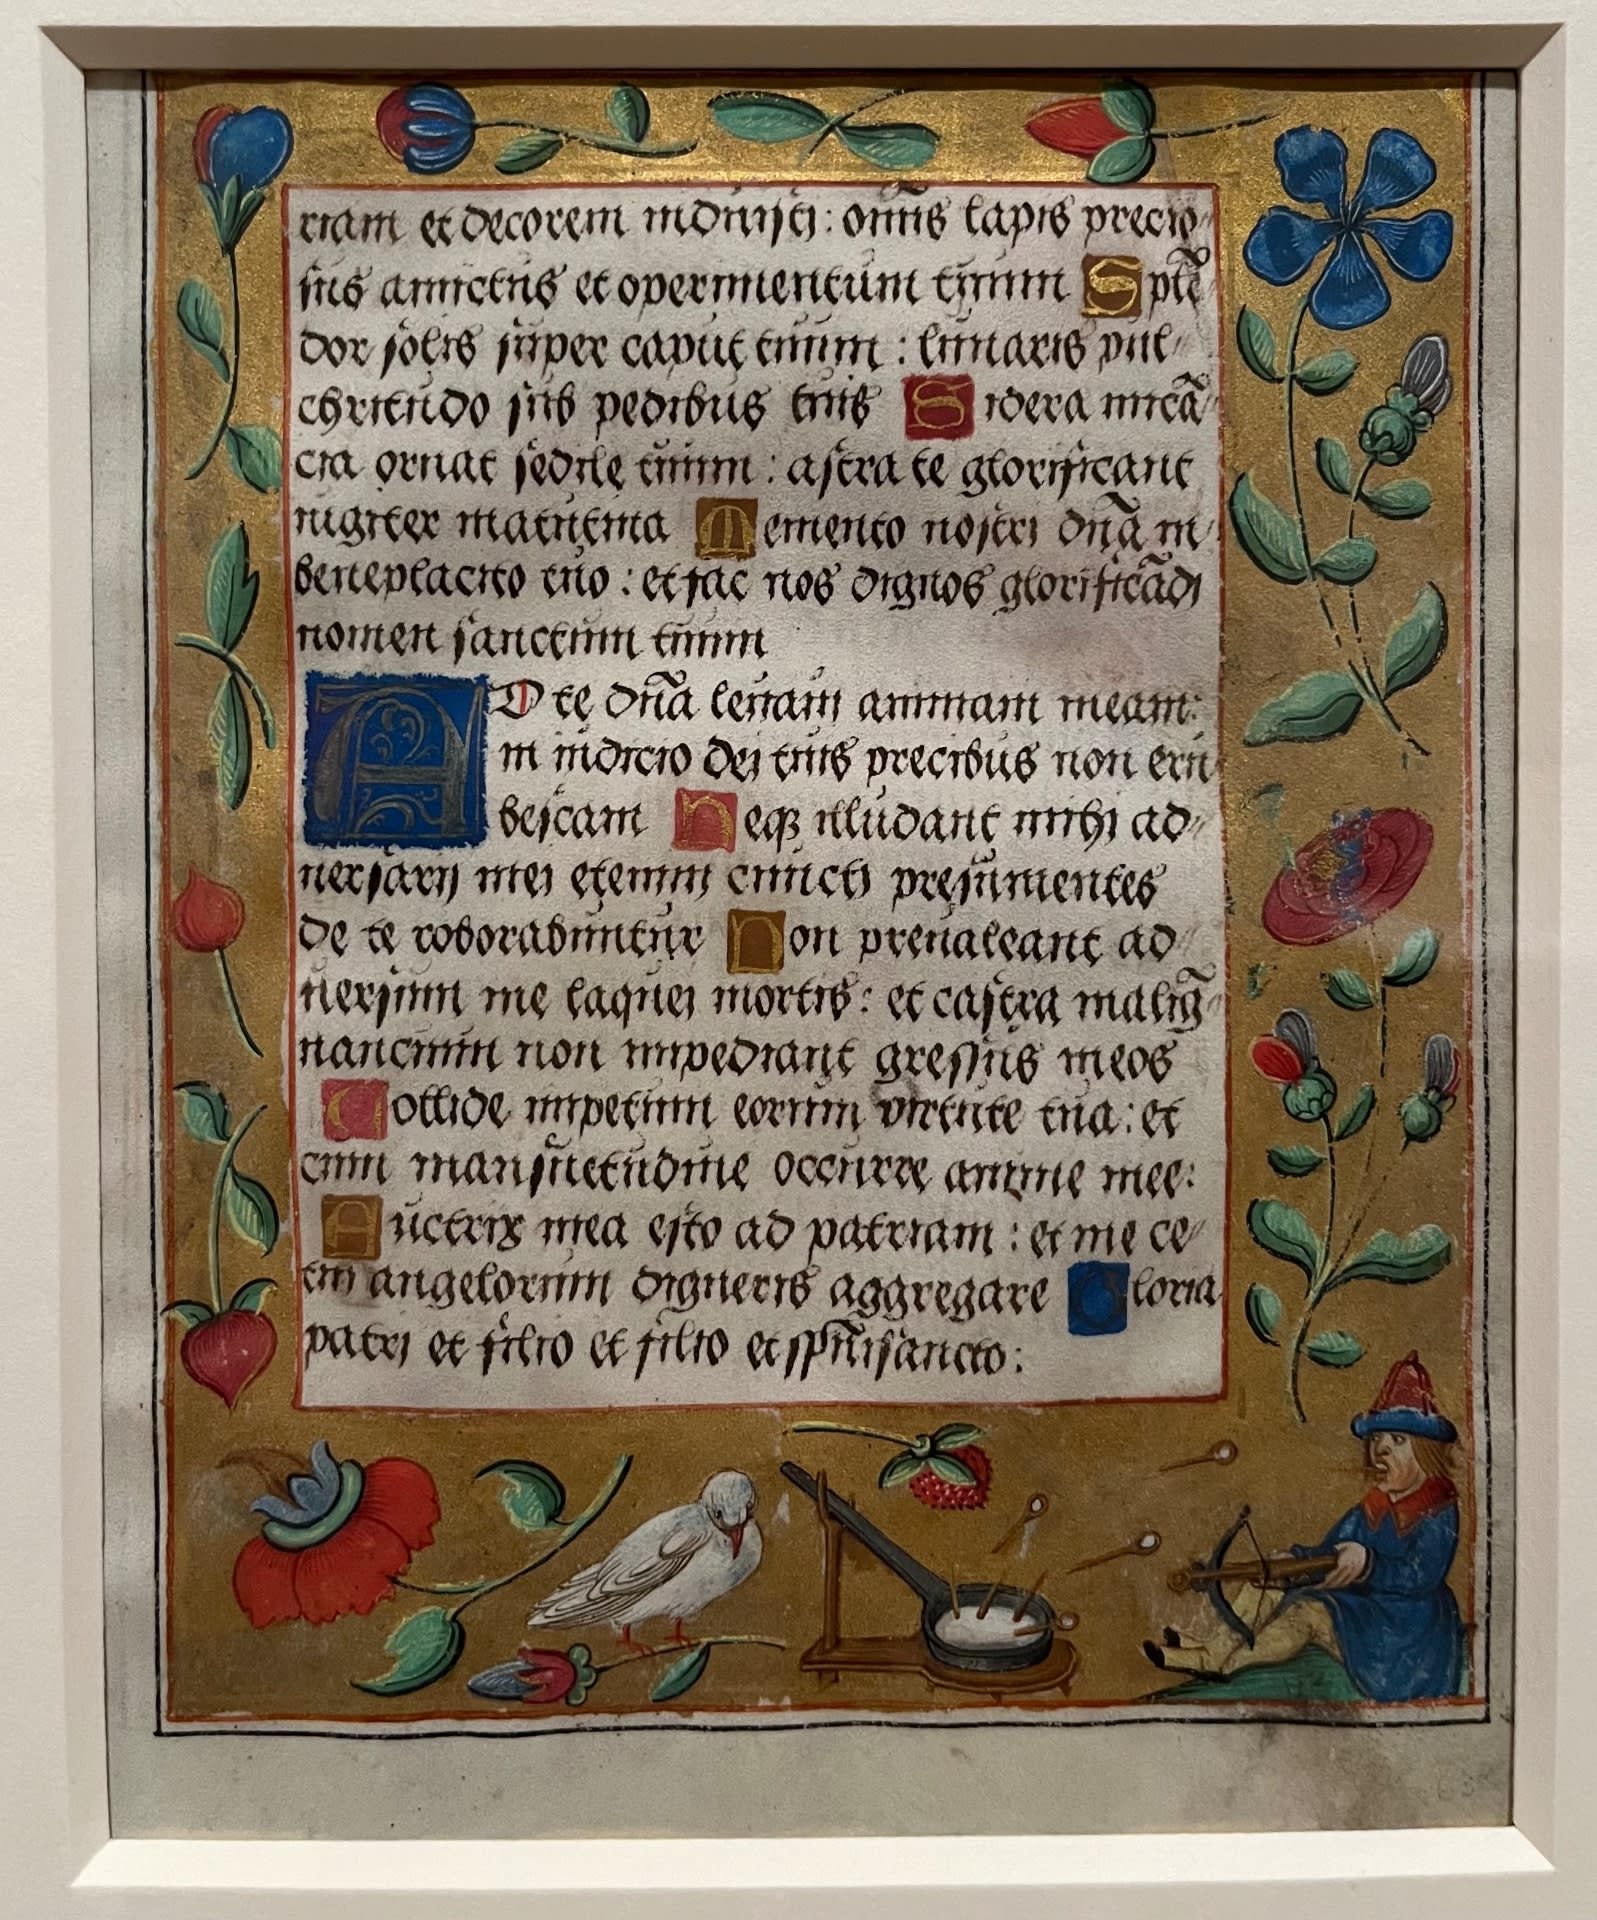 riam et decorem induisti: om̄is lapis precio
sus amictus et operimentum tuum Splē
dor solis super caput tuum : lunaris pul
chritudo sub pedibus tuis Sidera micā
cia ornāt sedile tuum : astra te glorificant
iugiter matutina Memento nostri dn̄a in
beneplacito tuo : et fac nos dignos glorificādi
nomen sanctum tuum
AD te dn̄a leuaui animam meam:
in iudicio dei tuis precibus non eru
bescam Neqꝫ illudant mihi ad
uersarij mei etenim cuncti presumentes
de te roborabuntur Non preualeant ad
uersum me laquei mortis : et castra malig̃
nancium non impediant gressus meos
Collide impetum eorum virtute tua : et
cum mansuetudine occurre anime mee:
Auctrix mea esto ad patriam : et me ce
tui angelorum digneris aggregare Gloria
patri et filio et filio et sp̄uisancto :